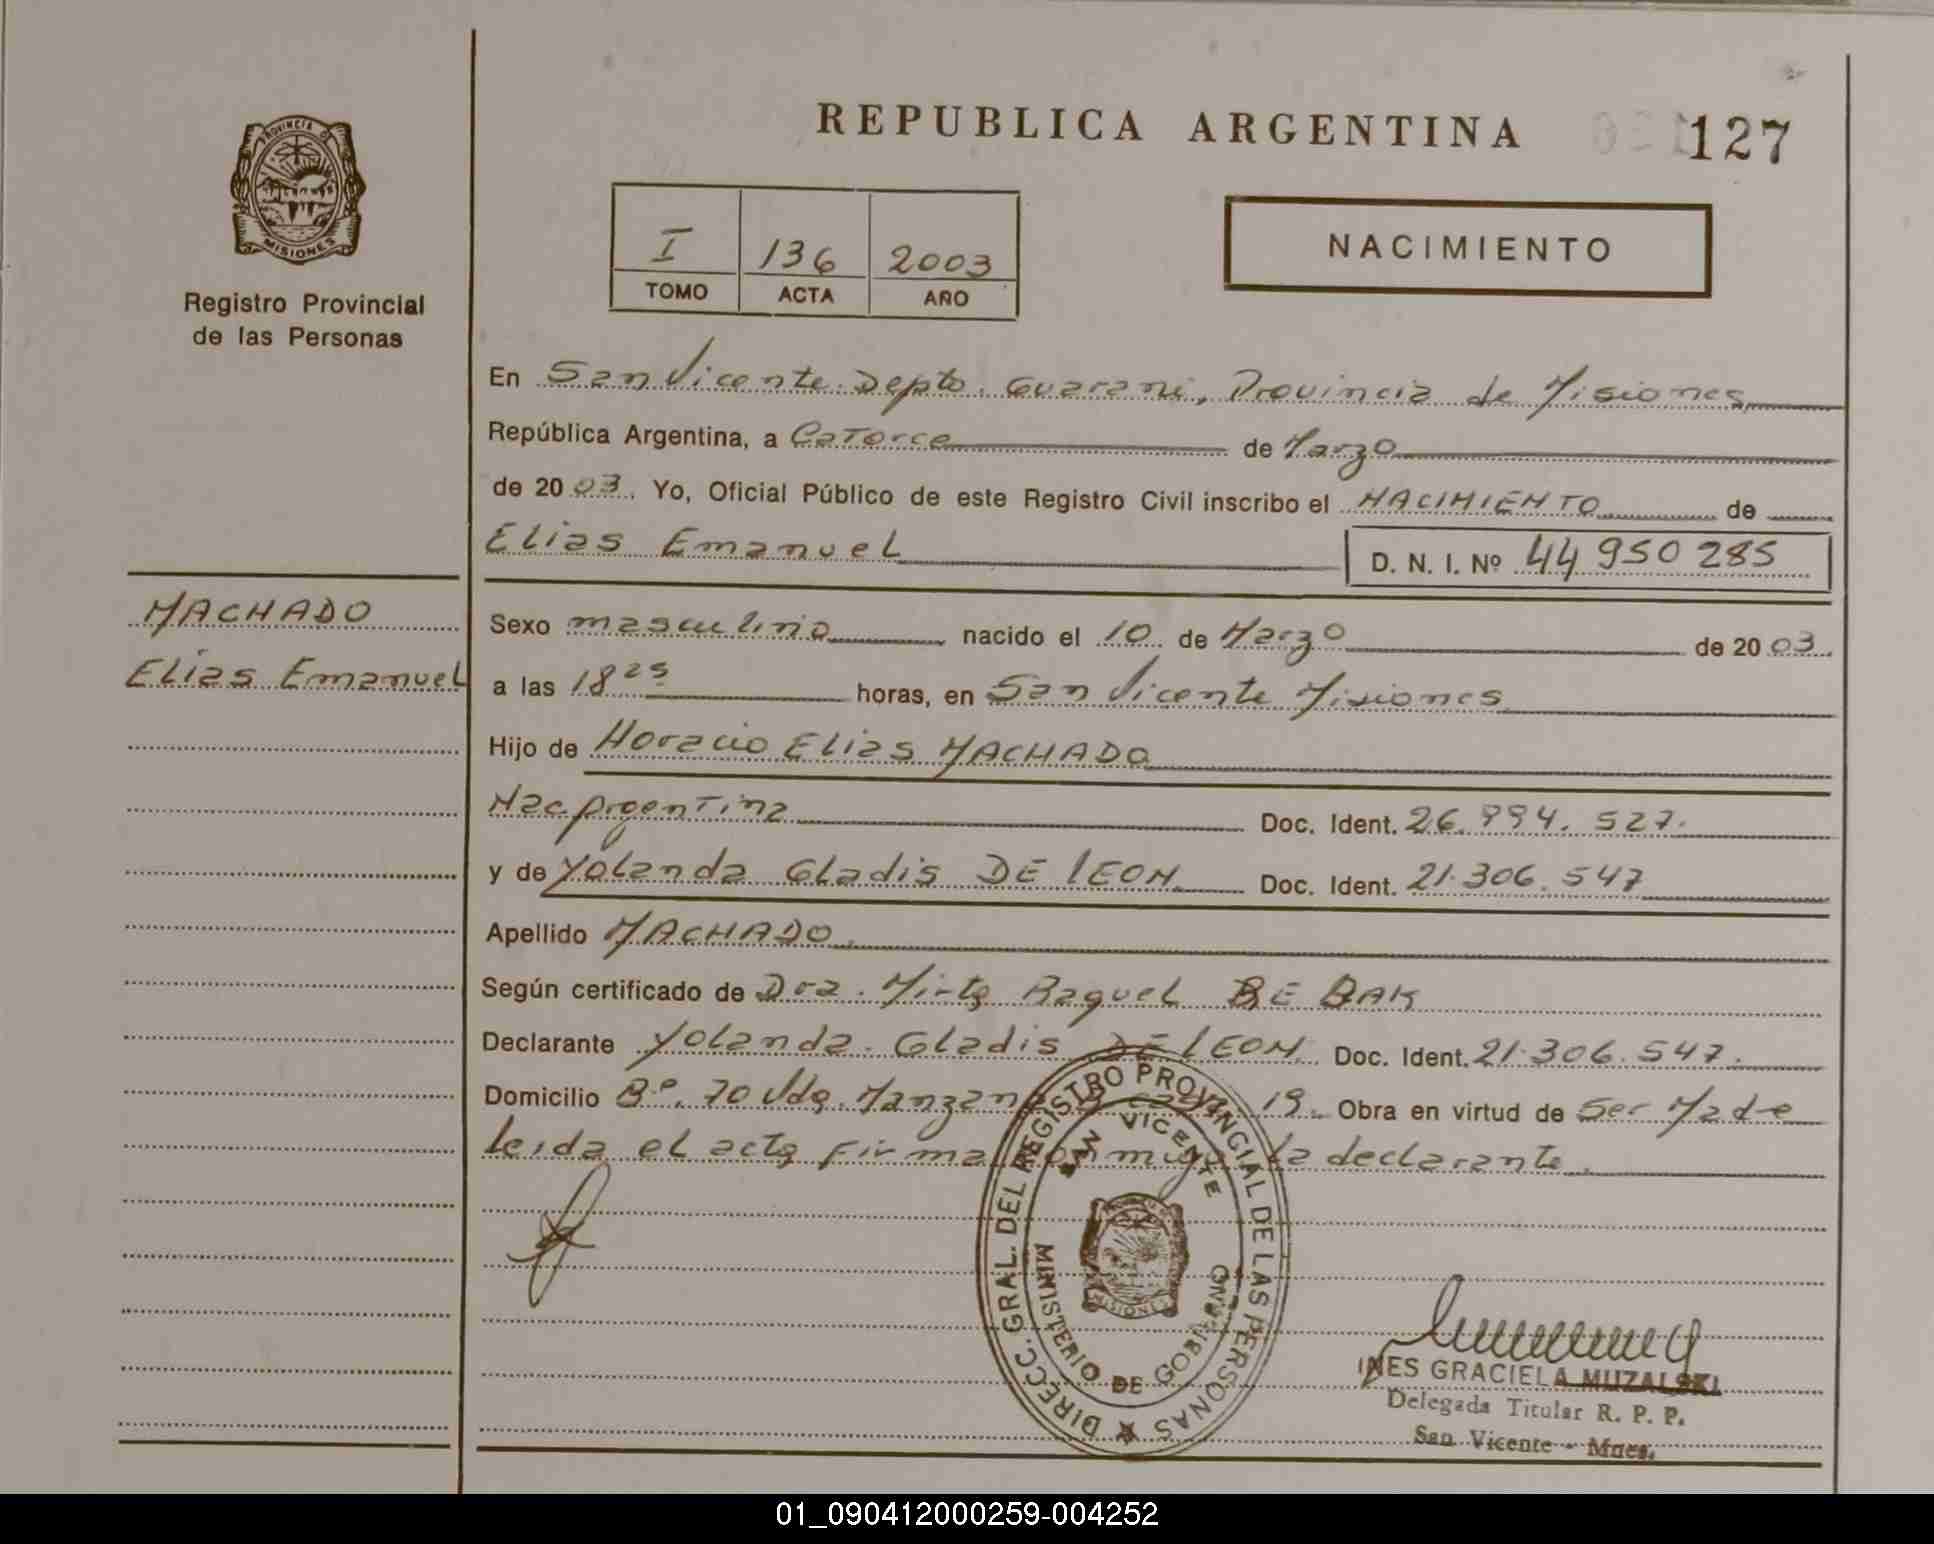 REPUBLICA ARGENTINA
127
PROVINCIA DE
MISIONES
Registro Provincial
de las Personas
I 136 2003
TOMO ACTA AÑO
NACIMIENTO
En San Vicente Depto. Guaraní, Provincia de Misiones
República Argentina, a Catorce de Marzo
de 20 03. Yo, Oficial Público de este Registro Civil inscribo el NACIMIENTO de
Elias Emanuel
D. N. I. Nº 44 950 285
MACHADO
Elias Emanuel
Sexo masculino nacido el 10 de Marzo de 20 03.
a las 18 25 horas, en San Vicente Misiones
Hijo de Horacio Elias MACHADO
Nac Argentina Doc. Ident. 26.994.527.
y de Yolanda Gladis DE LEON Doc. Ident. 21.306.547
Apellido MACHADO
Según certificado de Dra. Mirta Raquel BAK
Declarante Yolanda Gladis DE LEON Doc. Ident. 21.306.547.
Domicilio Bº. 70 Vdas. 19. Obra en virtud de Ser Madre
leida el acta firma conmigo la declarante.
DIRECC. GRAL. DEL REGISTRO PROVINCIAL DE LAS PERSONAS
SAN VICENTE
MINISTERIO DE GOBIERNO
MISIONES
INES GRACIELA MUZALSKI
Delegada Titular R. P. P.
San Vicente - Mnes.
01_090412000259-004252